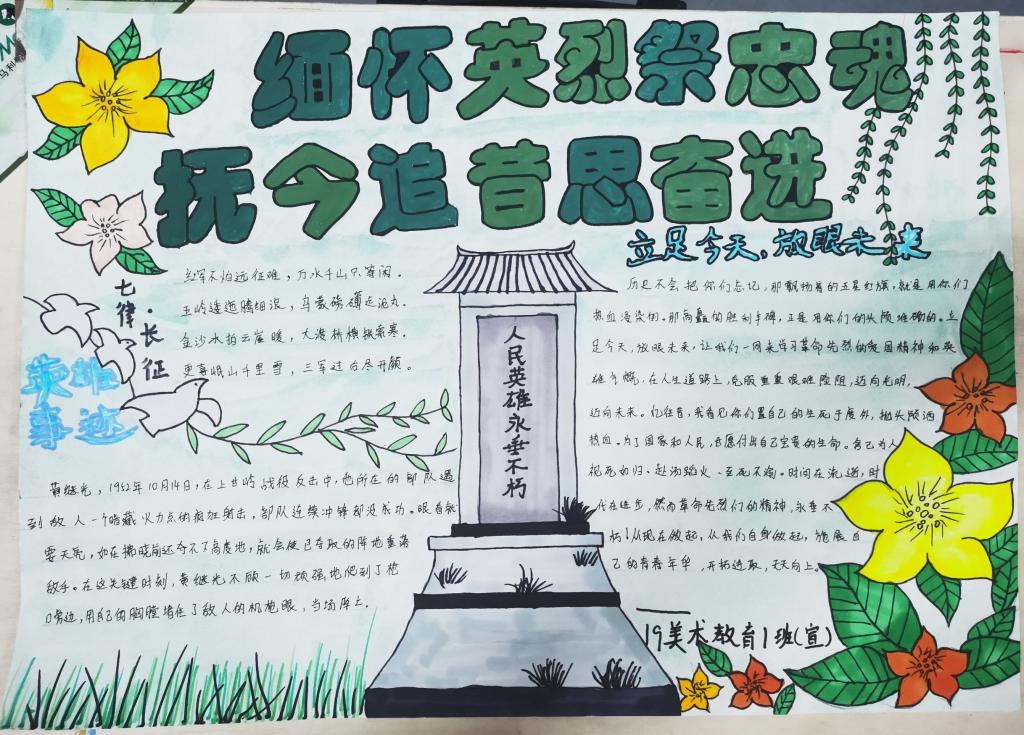 缅怀英烈祭忠魂
抚今追昔思奋进
七律·长征
红军不怕远征难，万水千山只等闲。
五岭逶迤腾细浪，乌蒙磅礴走泥丸。
金沙水拍云崖暖，大渡桥横铁索寒。
更喜岷山千里雪，三军过后尽开颜。
英雄
事迹
黄继光，1952年10月14日，在上甘岭战役反击中，他所在的部队遇
到敌人一个暗藏火力点的疯狂射击，部队连续冲锋都没成功。眼看就
要天亮，如在拂晓前还夺不了高度地，就会使已夺取的阵地重落
敌手。在这关键时刻，黄继光不顾一切顽强地爬到了枪
口旁边，用自己的胸膛堵住了敌人的机枪眼，当场阵亡.
人民英雄永垂不朽
立足今天，放眼未来
历史不会把你们忘记，那飘扬着的五星红旗，就是用你们
热血浸染的。那高矗的胜利丰碑，正是用你们的头颅堆砌的。立
足今天，放眼未来，让我们一同来学习革命先烈的爱国精神和英
雄气慨，在人生道路上，克服重重艰难险阻，迈向光明，
迈向未来。忆往昔，我看见你们置自己的生死于度外，抛头颅洒
热血。为了国家和人民，去愿付出自己宝贵的生命。舍己为人
视死如归、赴汤蹈火、至死不渝。时间在流逝，时
代在进步，然而革命先烈们的精神，永垂不
朽！从现在做起，从我们自身做起，施展自
己的青春年华，开拓进取，天天向上。
19美术教育1班(宣)